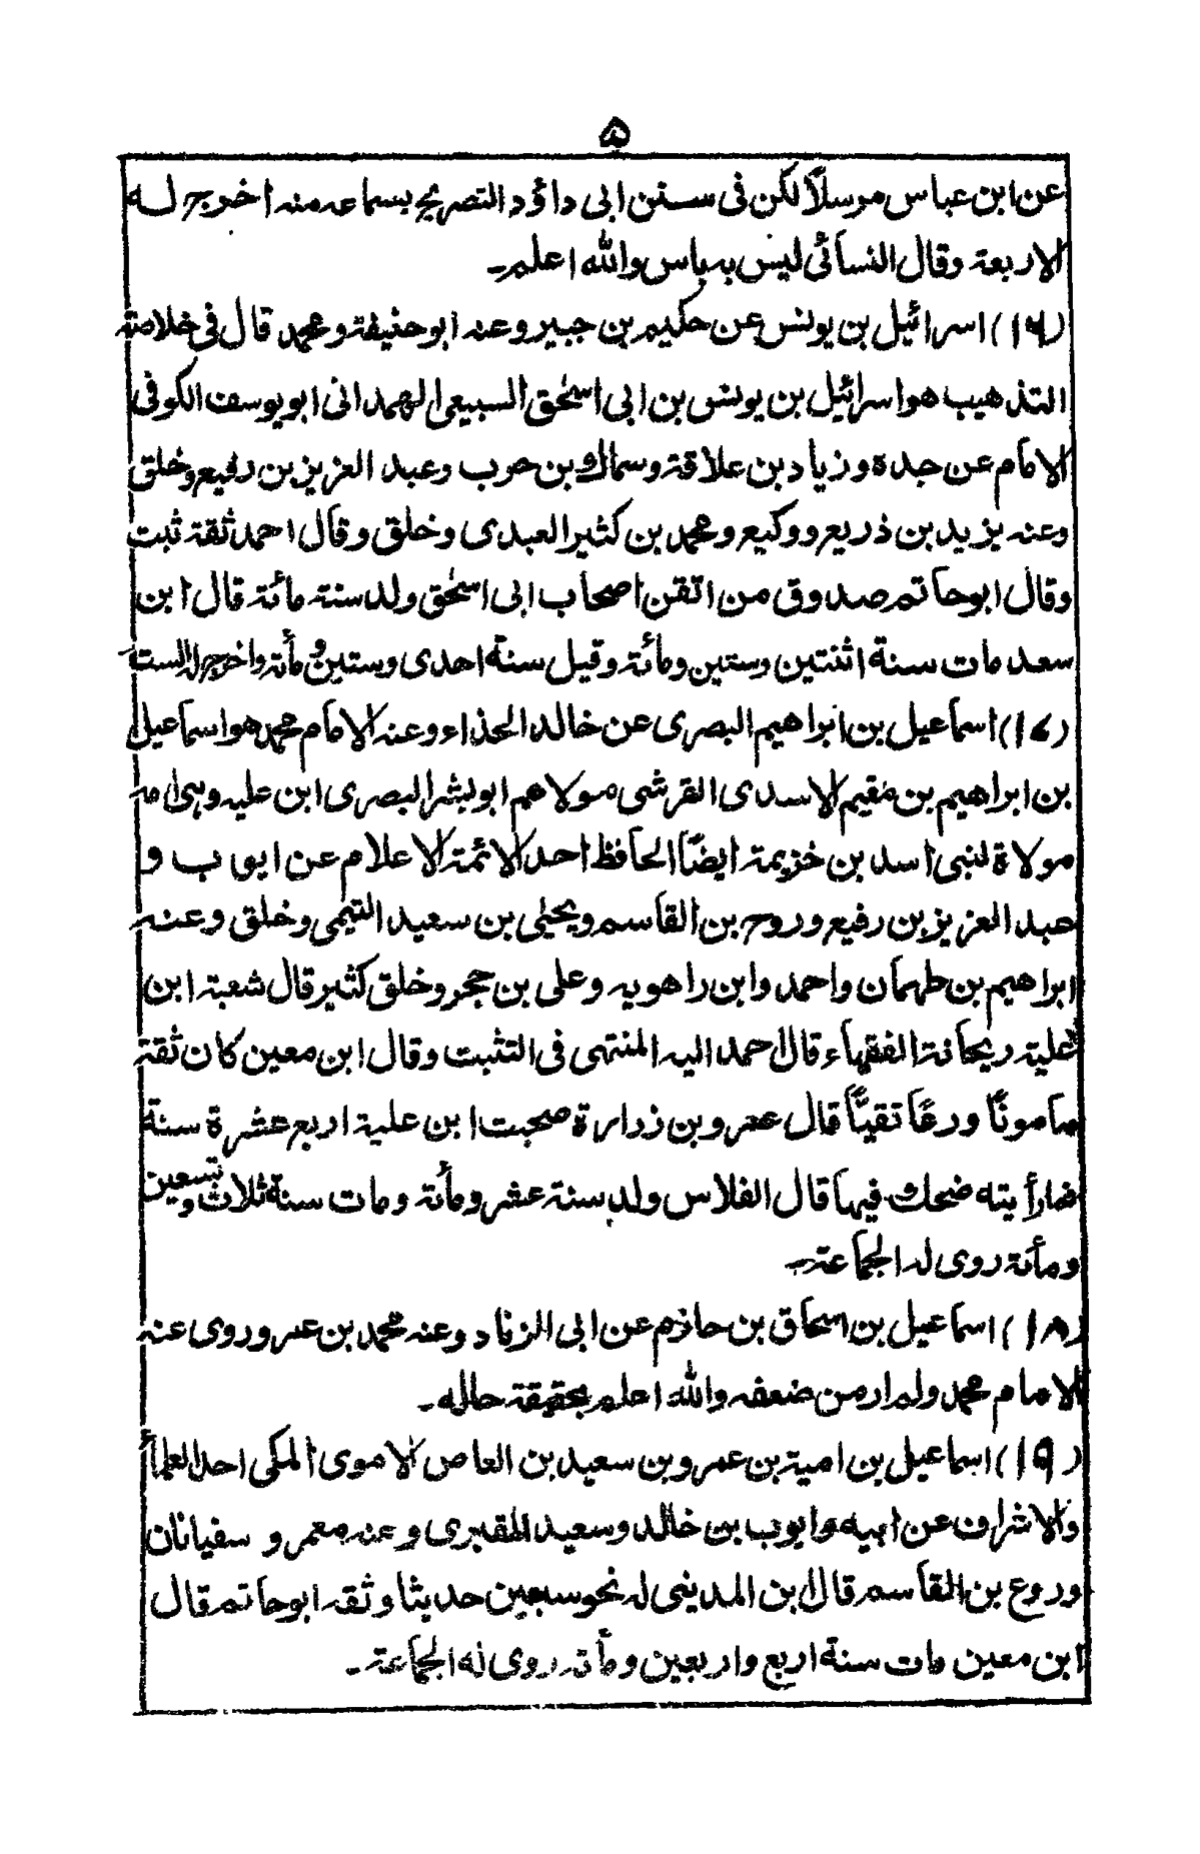 ۵
عن ابن عباس مرسلاً لكن فى سنن ابى داؤد التصريح بسماعه منه اخرج له
الاربعة وقال النسائى ليس به باس والله اعلم۔
(۱۶) اسرائيل بن يونس عن حكيم بن جبير وعنه ابو حنيفة ومحمد قال فى خلاصة
التذهيب هو اسرائيل بن يونس بن ابى اسحٰق السبيعى الهمدانى ابو يوسف الكوفى
الامام عن جده وزياد بن علاقة وسماك بن حرب وعبد العزيز بن رفيع وخلق
وعنه يزيد بن ذريع ووكيع ومحمد بن كثير العبدى وخلق وقال احمد ثقة ثبت
وقال ابو حاتم صدوق من اتقن اصحاب ابى اسحٰق ولد سنة مائة قال ابن
سعد مات سنة اثنتين وستين ومائة وقيل سنة احدى وستين ومأة واخرج له الستة
(۱۷) اسماعيل بن ابراهيم البصرى عن خالد الحذاء وعنه الامام محمد هو اسماعيل
بن ابراهيم بن مقيم الاسدى القرشى مولاهم ابو بشر البصرى ابن عليه وهى امه
مولاة لنبى اسد بن خزيمة ايضًا الحافظ احد الائمة الاعلام عن ايوب و
عبد العزيز بن رفيع وروح بن القاسم ويحيٰى بن سعيد التيمى وخلق وعنه
ابراهيم بن طهمان واحمد وابن راهويه وعلى بن حجر وخلق كثير قال شعبة ابن
علية ريحانة الفقهاء قال احمد اليه المنتهى فى التثبت وقال ابن معين كان ثقة
مامونًا ورعًا تقيًّا قال عمرو بن زرارة صحبت ابن علية اربع عشرة سنة
فما رأيته ضحك فيها قال الفلاس ولد سنة عشر ومأة ومات سنة ثلاث وتسعين
ومأة روى له الجماعة۔
(۱۸) اسماعيل بن اسحاق بن حازم عن ابى الزناد وعنه محمد بن عمر وروى عنه
الامام محمد ولم ار من ضعفه والله اعلم بحقيقة حاله۔
(۱۹) اسماعيل بن امية بن عمرو بن سعيد بن العاص الاموى المكى احد العلمأ
والاشراف عن ابيه وايوب بن خالد وسعيد المقبرى وعنه معمر و سفيانان
وروع بن القاسم قال ابن المدينى له نحو سبعين حديثا وثقه ابو حاتم قال
ابن معين مات سنة اربع واربعين ومأة روى له الجماعة۔